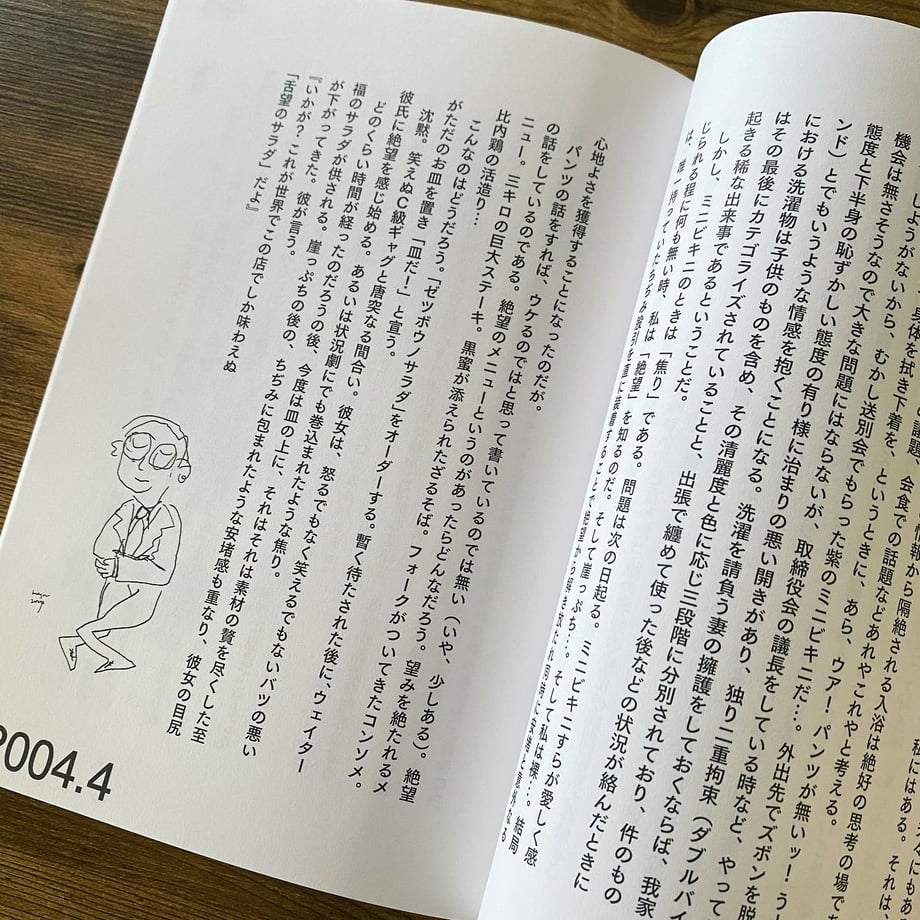 しようがないから、身体を拭き下着を、というときに、あら、ウア!パンツが無いッ!う
機会は無さそうなので大きな問題にはならないが、取締役会の議長をしている時など、やって
態度と下半身の恥ずかしい態度の有り様に治まりの悪い開きがあり、独り二重拘束(ダブルバイ
ンド)とでもいうような情感を抱くことになる。洗濯を請負う妻の擁護をしておくならば、我家
における洗濯物は子供のものを含め、その清麗度と色に応じ三段階に分別されており、件のもの
はその最後にカテゴライズされていることと、出張で纏めて使った後などの状況が絡んだときに
起きる稀な出来事であるということだ。
しかし、ミニビキニのときは「焦り」である。問題は次の日起る。ミニビキニすらが愛しく感
じられる程に何も無い時、私は「絶望」を知るのだ。そして崖っぷち…。そして私は裸…。結局
は、唯一持っていたちぢみ股引を直に装着することで絶望から解き放たれ同時に安堵と意外なる
心地よさを獲得することになったのだが。
パンツの話をすれば、ウケるのではと思って書いているのでは無い(いや、少しある)。絶望
の話をしているのである。絶望のメニューというのがあったらどんなだろう。望みを絶たれるメ
ニュー。三キロの巨大ステーキ。黒蜜が添えられたざるそば。フォークがついてきたコンソメ。
比内鶏の活造り…
こんなのはどうだろう。「ゼッボウノサラダ」をオーダーする。暫く待たされた後に、ウェイター
がただのお皿を置き「皿だ!」と宣う。
沈黙。笑えぬC級ギャグと唐突なる間合い。彼女は、怒るでもなく笑えるでもないバツの悪い
彼氏に絶望を感じ始める。あるいは状況劇にでも巻込まれたような焦り。
どのくらい時間が経ったのだろうの後、今度は皿の上に、それはそれは素材の贅を尽くした至
福のサラダが供される。崖っぷちの後の、ちぢみに包まれたような安堵感も重なり、彼女の目尻
が下がってきた。彼が言う。
『いかが?これが世界でこの店でしか味わえぬ
「舌望のサラダ」だよ』
2004.4